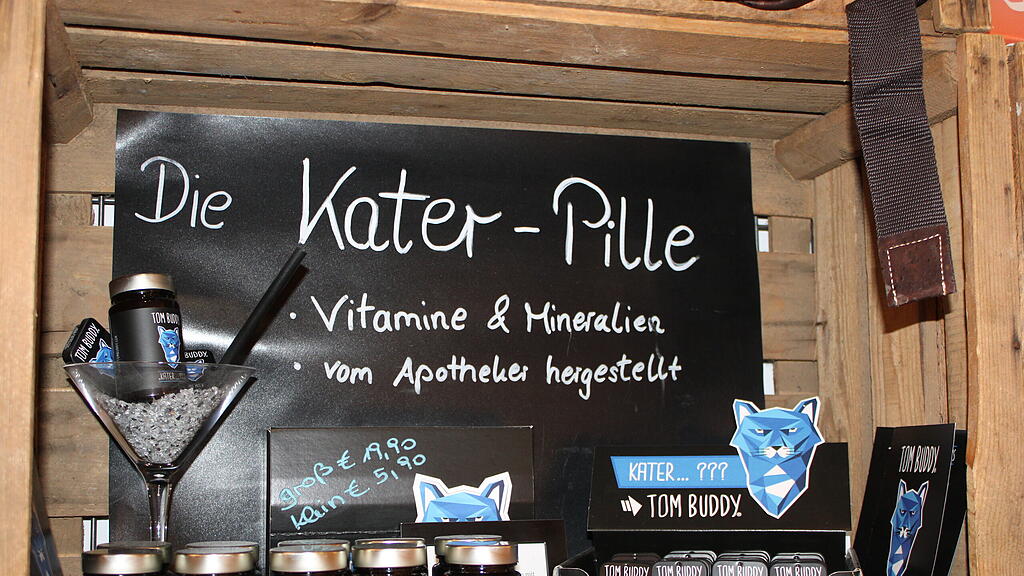 Die Kater-Pille
• Vitamine & Mineralien
• vom Apotheker hergestellt
groß € 19,90
klein € 5,90
KATER... ???
TOM BUDDY.
TOM BUDDY.
TOM BUDDY
BUDDY.
KATER
TOM BUDDY.
TOM BUDDY.
TOM BUDDY.
TOM BUDDY.
TOM BUDDY.